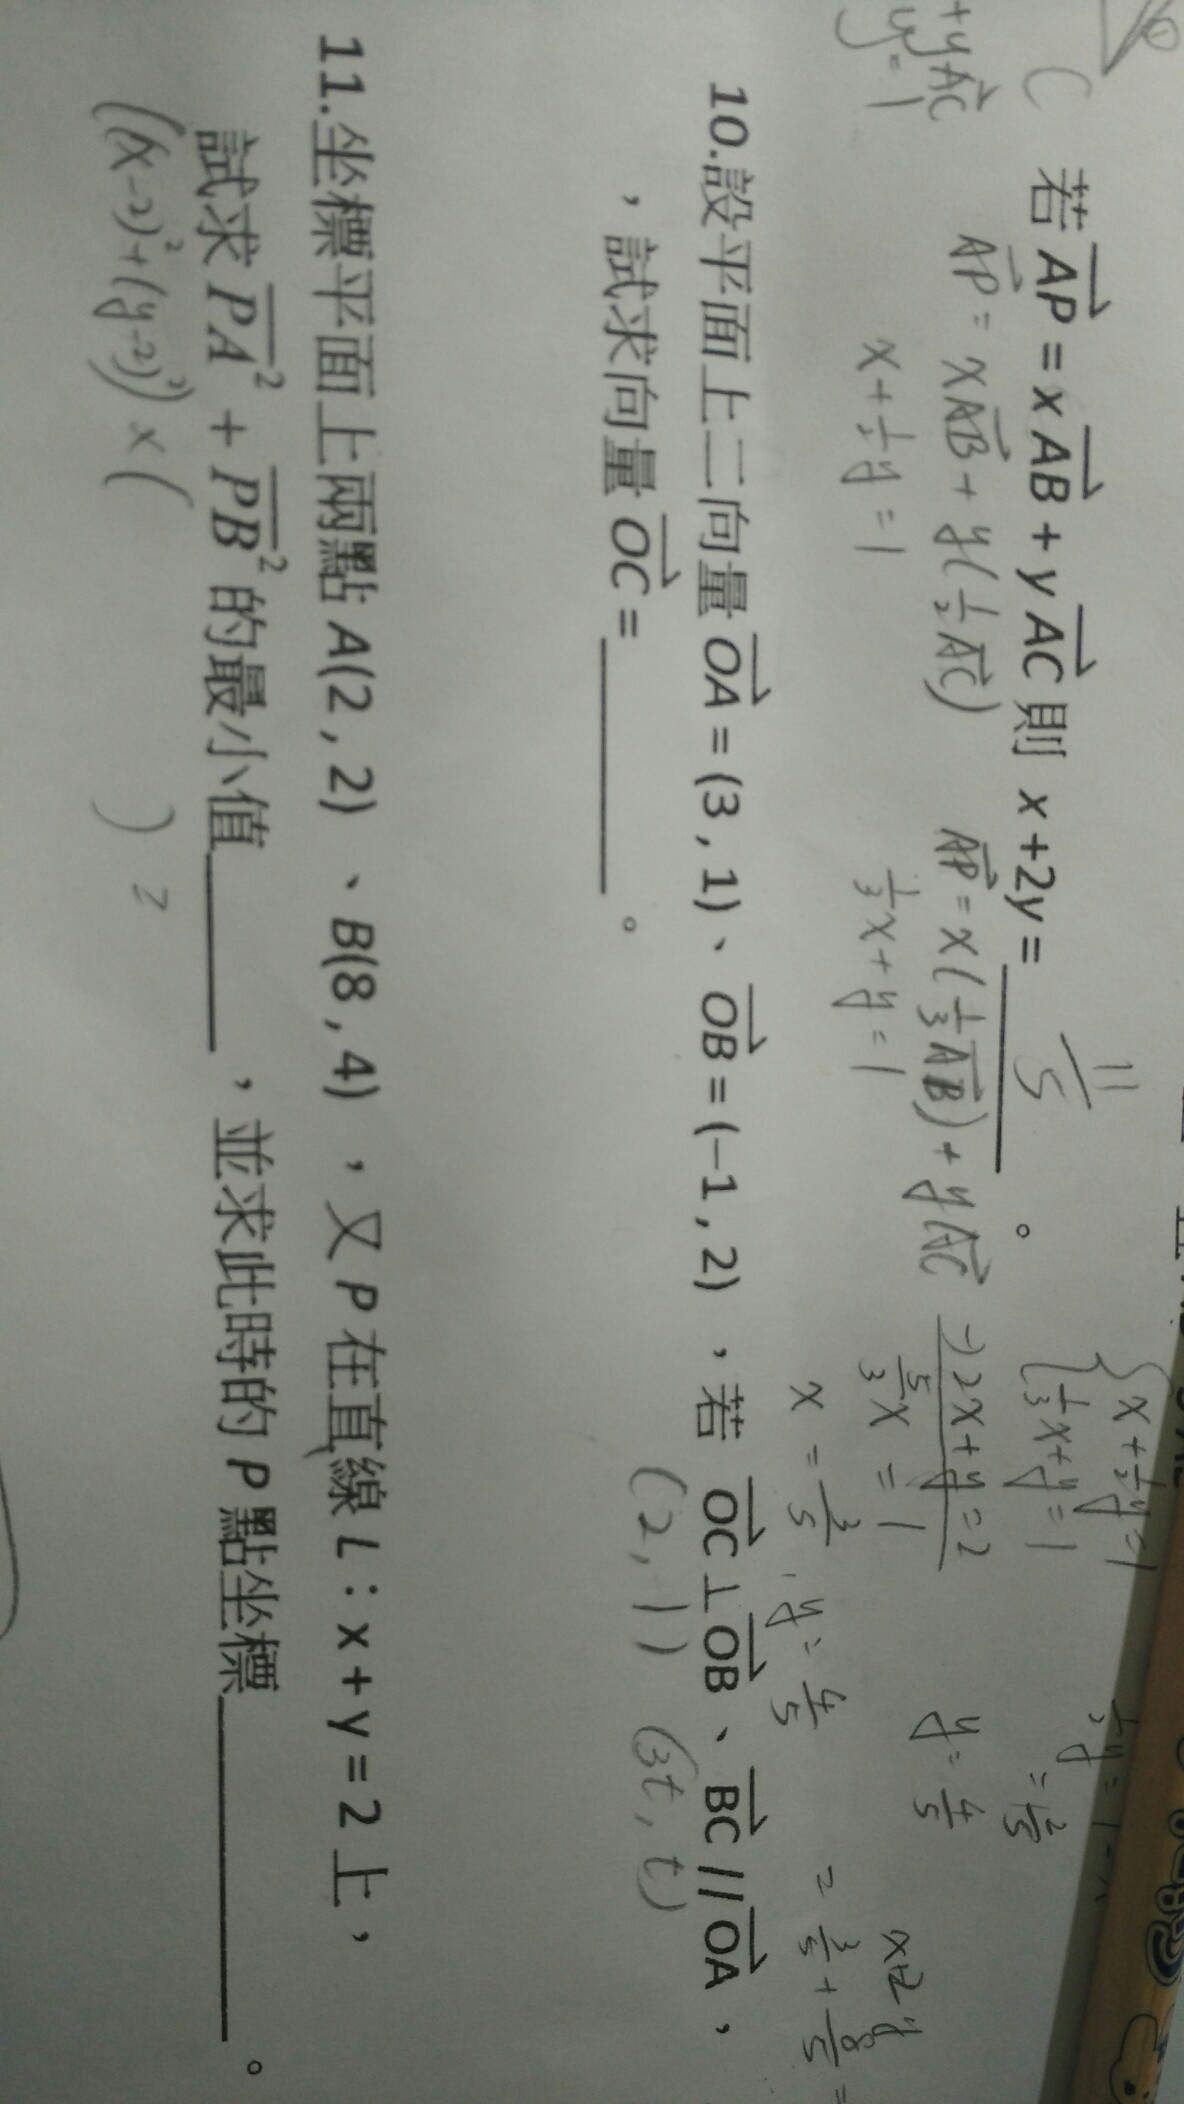 +yAC
y=1
C
若 AP = x AB + y AC 則 x+2y= 。
11/5
AP = xAB + y(1/2 AC)
x+1/2y=1
AP = x(1/3 AB) + yAC
1/3x+y=1
x+1/2y=1
1/3x+y=1
-)2x+y=2
5/3x=1
x=3/5, y=4/5
y=4/5
x+2y
=3/5+8/5=
10.設平面上二向量 OA = (3 , 1)、OB = (−1 , 2) ,若 OC⊥OB、BC // OA ,
,試求向量 OC = 。
(2,1) (3t,t)
11.坐標平面上兩點 A(2 , 2)、B(8 , 4) ,又 P 在直線 L:x + y = 2 上,
試求 PA² + PB² 的最小值 ,並求此時的 P 點坐標 。
((x-2)²+(y-2)²) x ( ) ≥